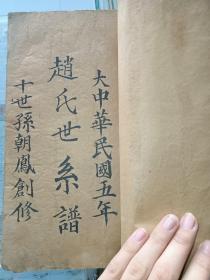 大中華民國五年
趙氏世系譜
十世孫朝鳳創修